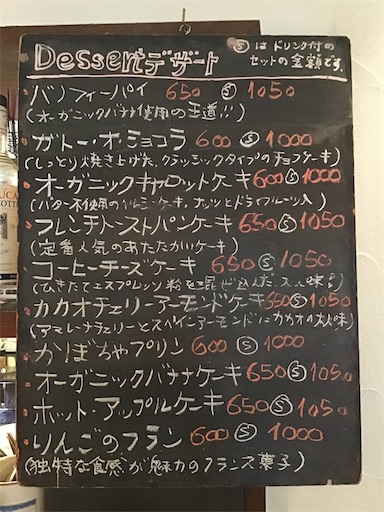 Dessert デザート
Ⓢ は ドリンク付の
セットの金額です。
バノフィーパイ 650 Ⓢ 1050
(オーガニックバナナ使用の王道!!)
ガトー・オ・ショコラ 600 Ⓢ 1000
(しっとり焼き上げた、クラッシックタイプのチョコケーキ)
オーガニックキャロットケーキ 600 Ⓢ 1000
(バター不使用のヘルシーケーキ、ナッツとドライフルーツ入)
フレンチトーストパンケーキ 650 Ⓢ 1050
(定番人気のあたたかいケーキ)
コーヒーチーズケーキ 650 Ⓢ 1050
(ひきたてエスプレッソ粉を混ぜ込んだ大人味!)
カカオチェリーアーモンドケーキ 550 Ⓢ 1050
(アマレーナチェリーとスペインアーモンドにカカオの大人味)
かぼちゃプリン 600 Ⓢ 1000
オーガニックバナナケーキ 650 Ⓢ 1050
ホット・アップルケーキ 650 Ⓢ 1050
りんごのフラン 600 Ⓢ 1000
(独特な食感が魅力のフランス菓子)